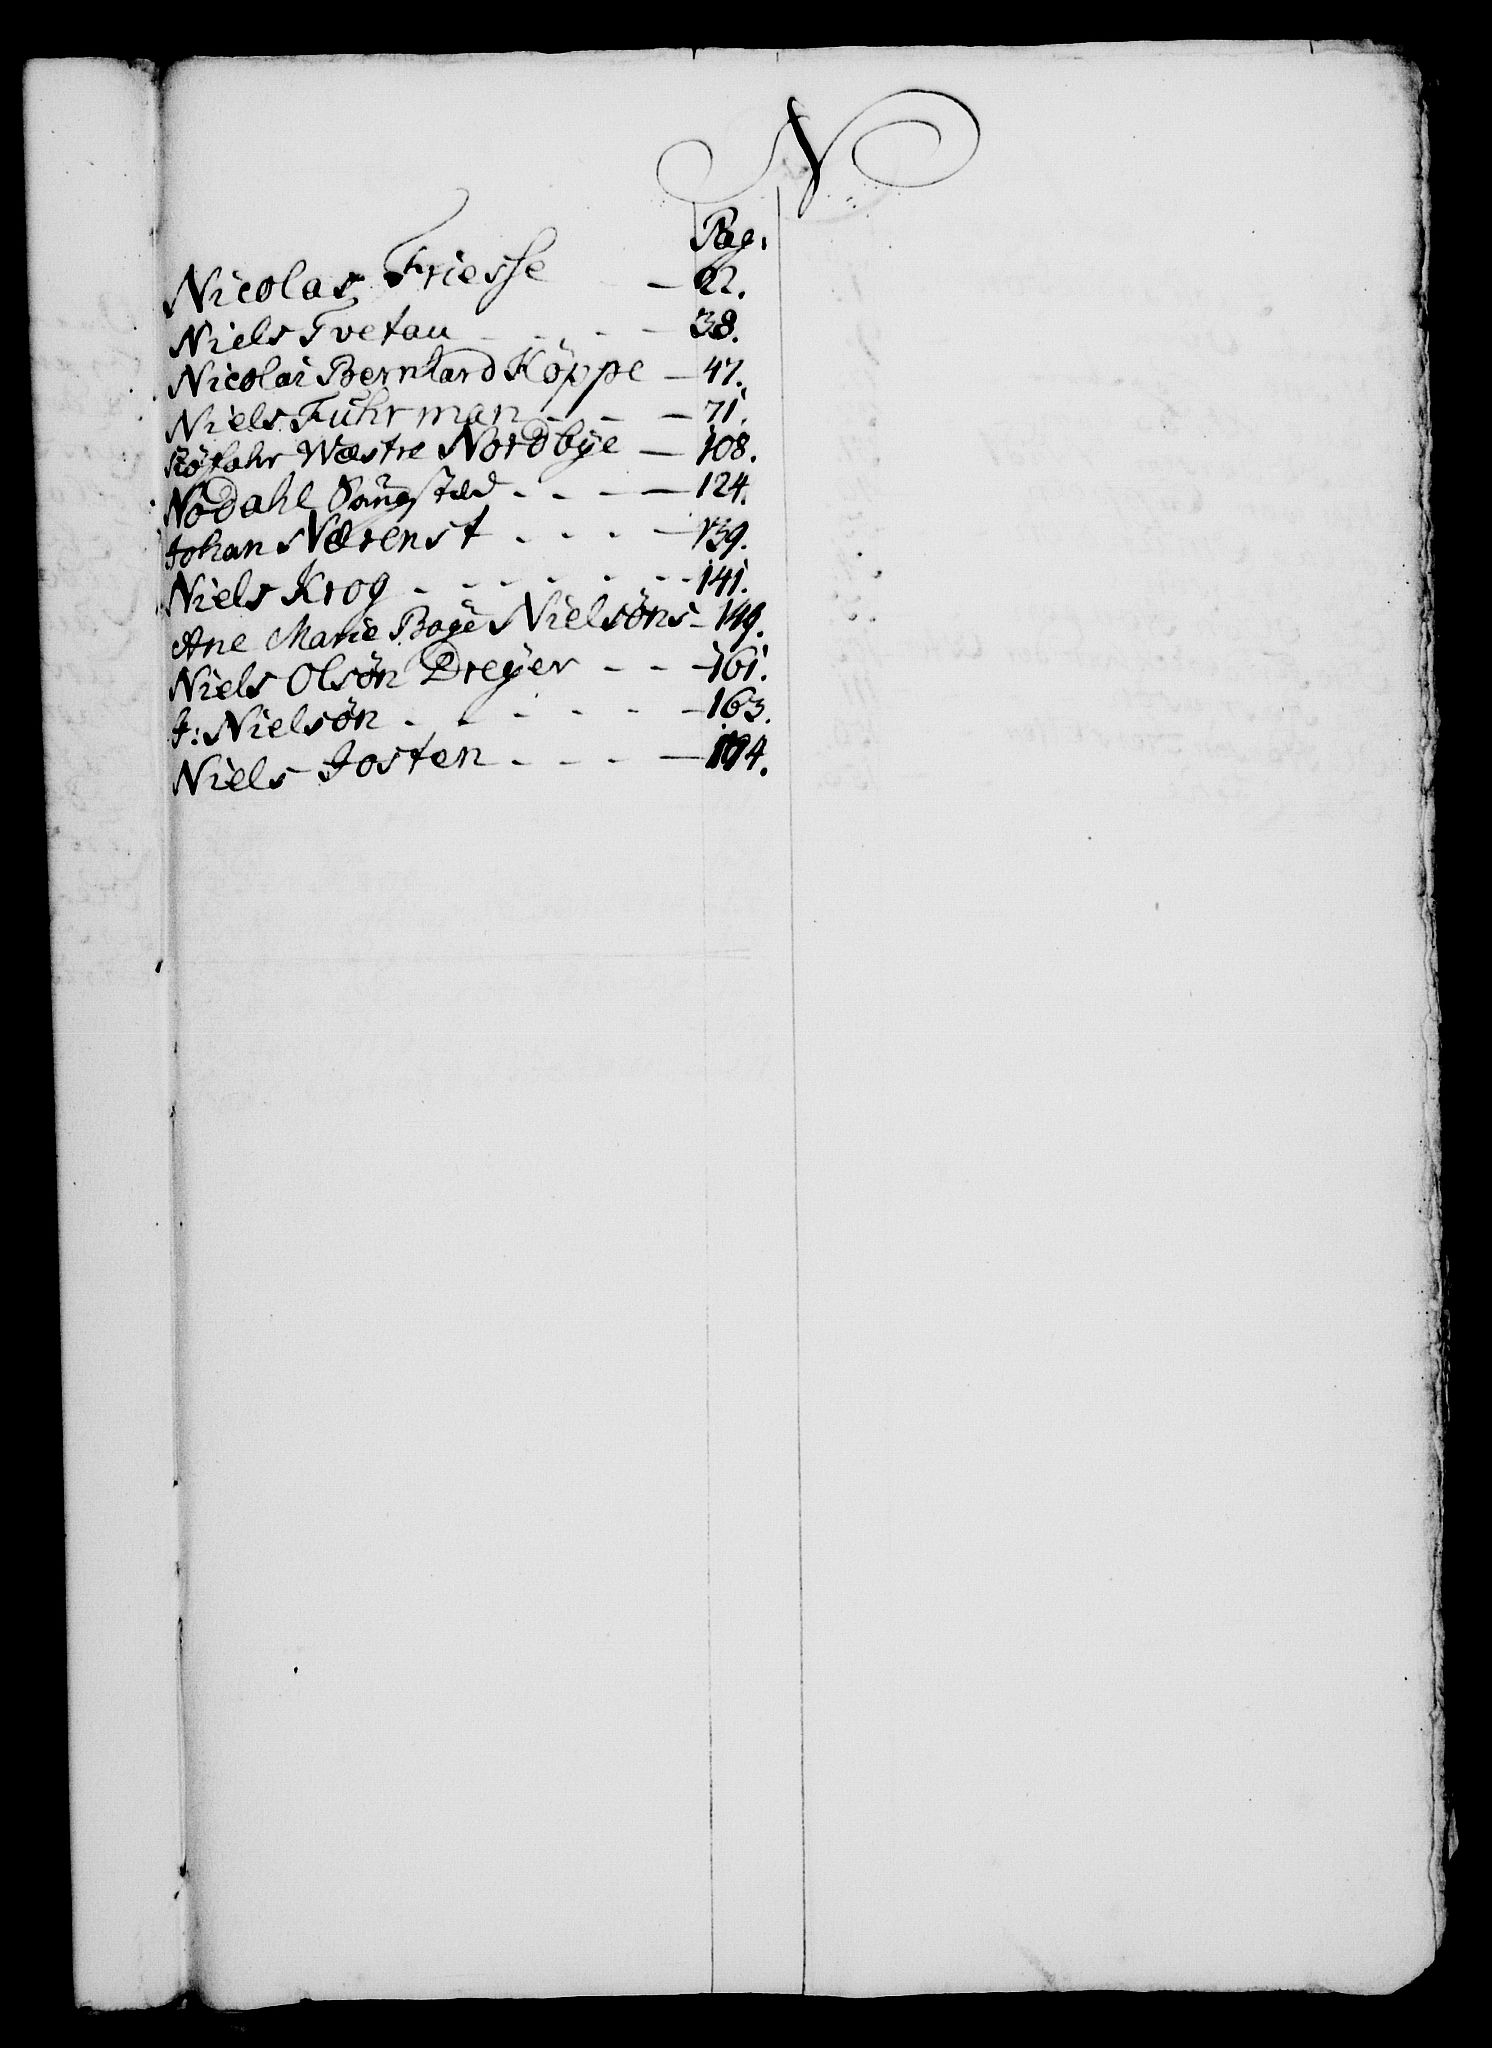 N
Pag:
Nicolas Friesse — 22.
Niels Tvetau - - - — 38.
Nicolai Bernhard Köppe — 47.
Niels Fuhrman - - — 71.
Wæstre Nordbÿe — 108.
Nodahl - - — 124.
Johan Nærenst - - - - — 139.
Niels Krog - - - - - - - 141.
Ane Marie Boÿe Nielsöns - 149.
Niels Olsön Dreÿer - - — 161.
J: Nielsön - - - - - — 163.
Niels Josten - - - - — 194.